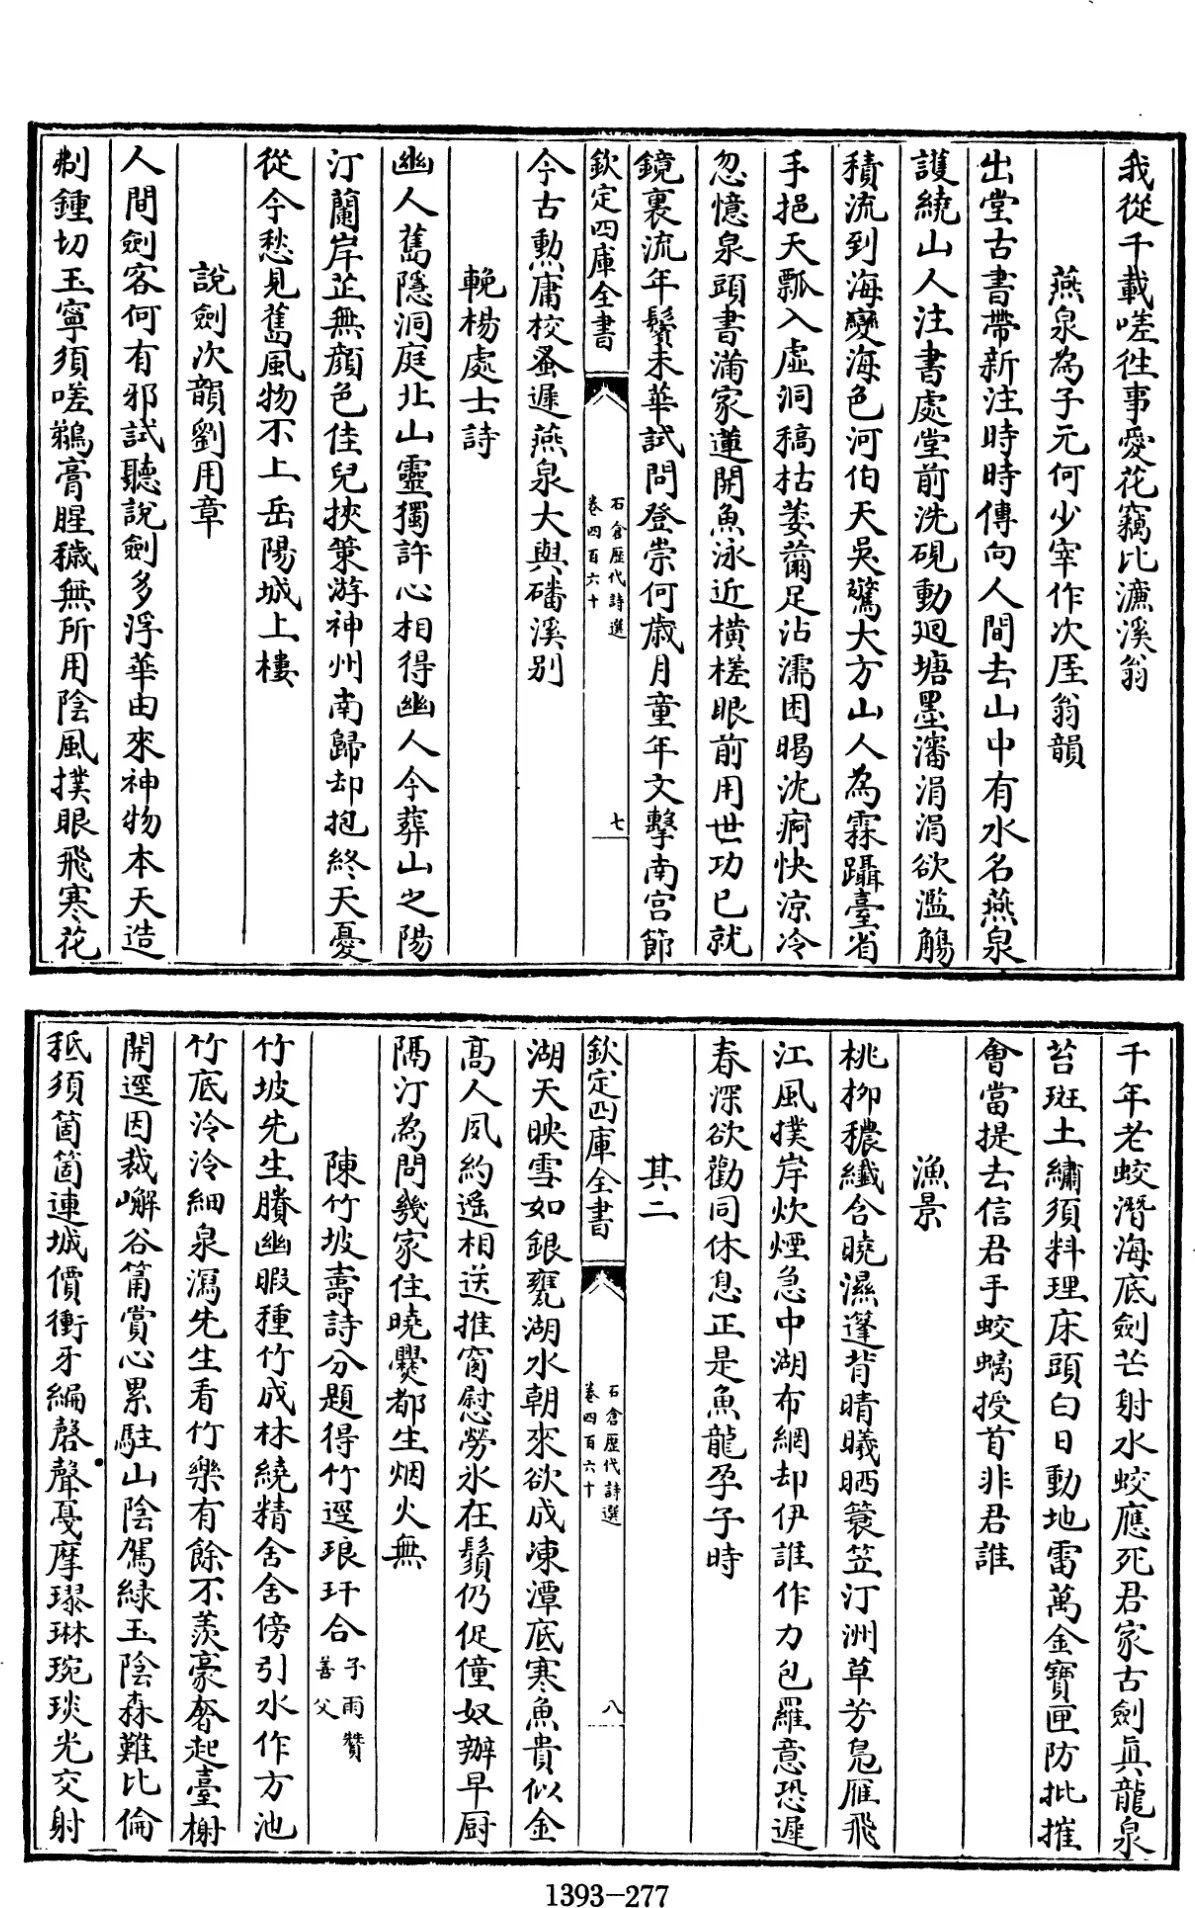 我從千載嗟徃事愛花竊比濂溪翁
燕泉為子元何少宰作次厓翁韻
出堂古書帶新注時時傳向人間去山中有水名燕泉
護繞山人注書處堂前洗硯動廻塘墨瀋涓涓欲濫觴
積流到海變海色河伯天吳驚大方山人為霖躡臺省
手挹天瓢入虛洞稿枯萎薾足沾濡困暍沈痾快涼冷
忽憶泉頭書滿家蓮開魚泳近橫槎眼前用世功已就
鏡裏流年鬢未華試問登崇何歲月童年文擊南宮節
欽定四庫全書
石倉歷代詩選
卷四百六十
七
今古勲庸校蚤遲燕泉大與磻溪別
輓楊處士詩
幽人舊隱洞庭北山靈獨許心相得幽人今葬山之陽
汀蘭岸芷無顏色佳兒挾策游神州南歸却抱終天憂
從今愁見舊風物不上岳陽城上樓
說劍次韻劉用章
人間劍客何有邪試聽說劍多浮華由來神物本天造
剸鍾切玉寧須嗟鵜膏腥穢無所用陰風撲眼飛寒花
千年老蛟潛海底劍芒射水蛟應死君家古劍真龍泉
苔斑土繡須料理床頭白日動地雷萬金寶匣防批摧
會當提去信君手蛟螭授首非君誰
漁景
桃柳穠纖含曉濕篷背晴曦晒簑笠汀洲草芳鳧雁飛
江風撲岸炊煙急中湖布網却伊誰作力包羅意恐遲
春深欲勸同休息正是魚龍孕子時
其二
欽定四庫全書
石倉歷代詩選
卷四百六十
八
湖天映雪如銀甕湖水朝來欲成凍潭底寒魚貴似金
高人夙約遙相送推窗慰勞氷在鬚仍促僮奴辦早厨
隔汀為問幾家住曉爨都生烟火無
陳竹坡壽詩分題得竹逕琅玕合子雨贊善父
竹坡先生賸幽暇種竹成林繞精舍舍傍引水作方池
竹底泠泠細泉瀉先生看竹樂有餘不羨豪奢起臺榭
開逕因裁嶰谷篇賞心累駐山陰駕綠玉陰森難比倫
秖須箇箇連城價衝牙編磬聲戞摩璆琳琬琰光交射
1393-277